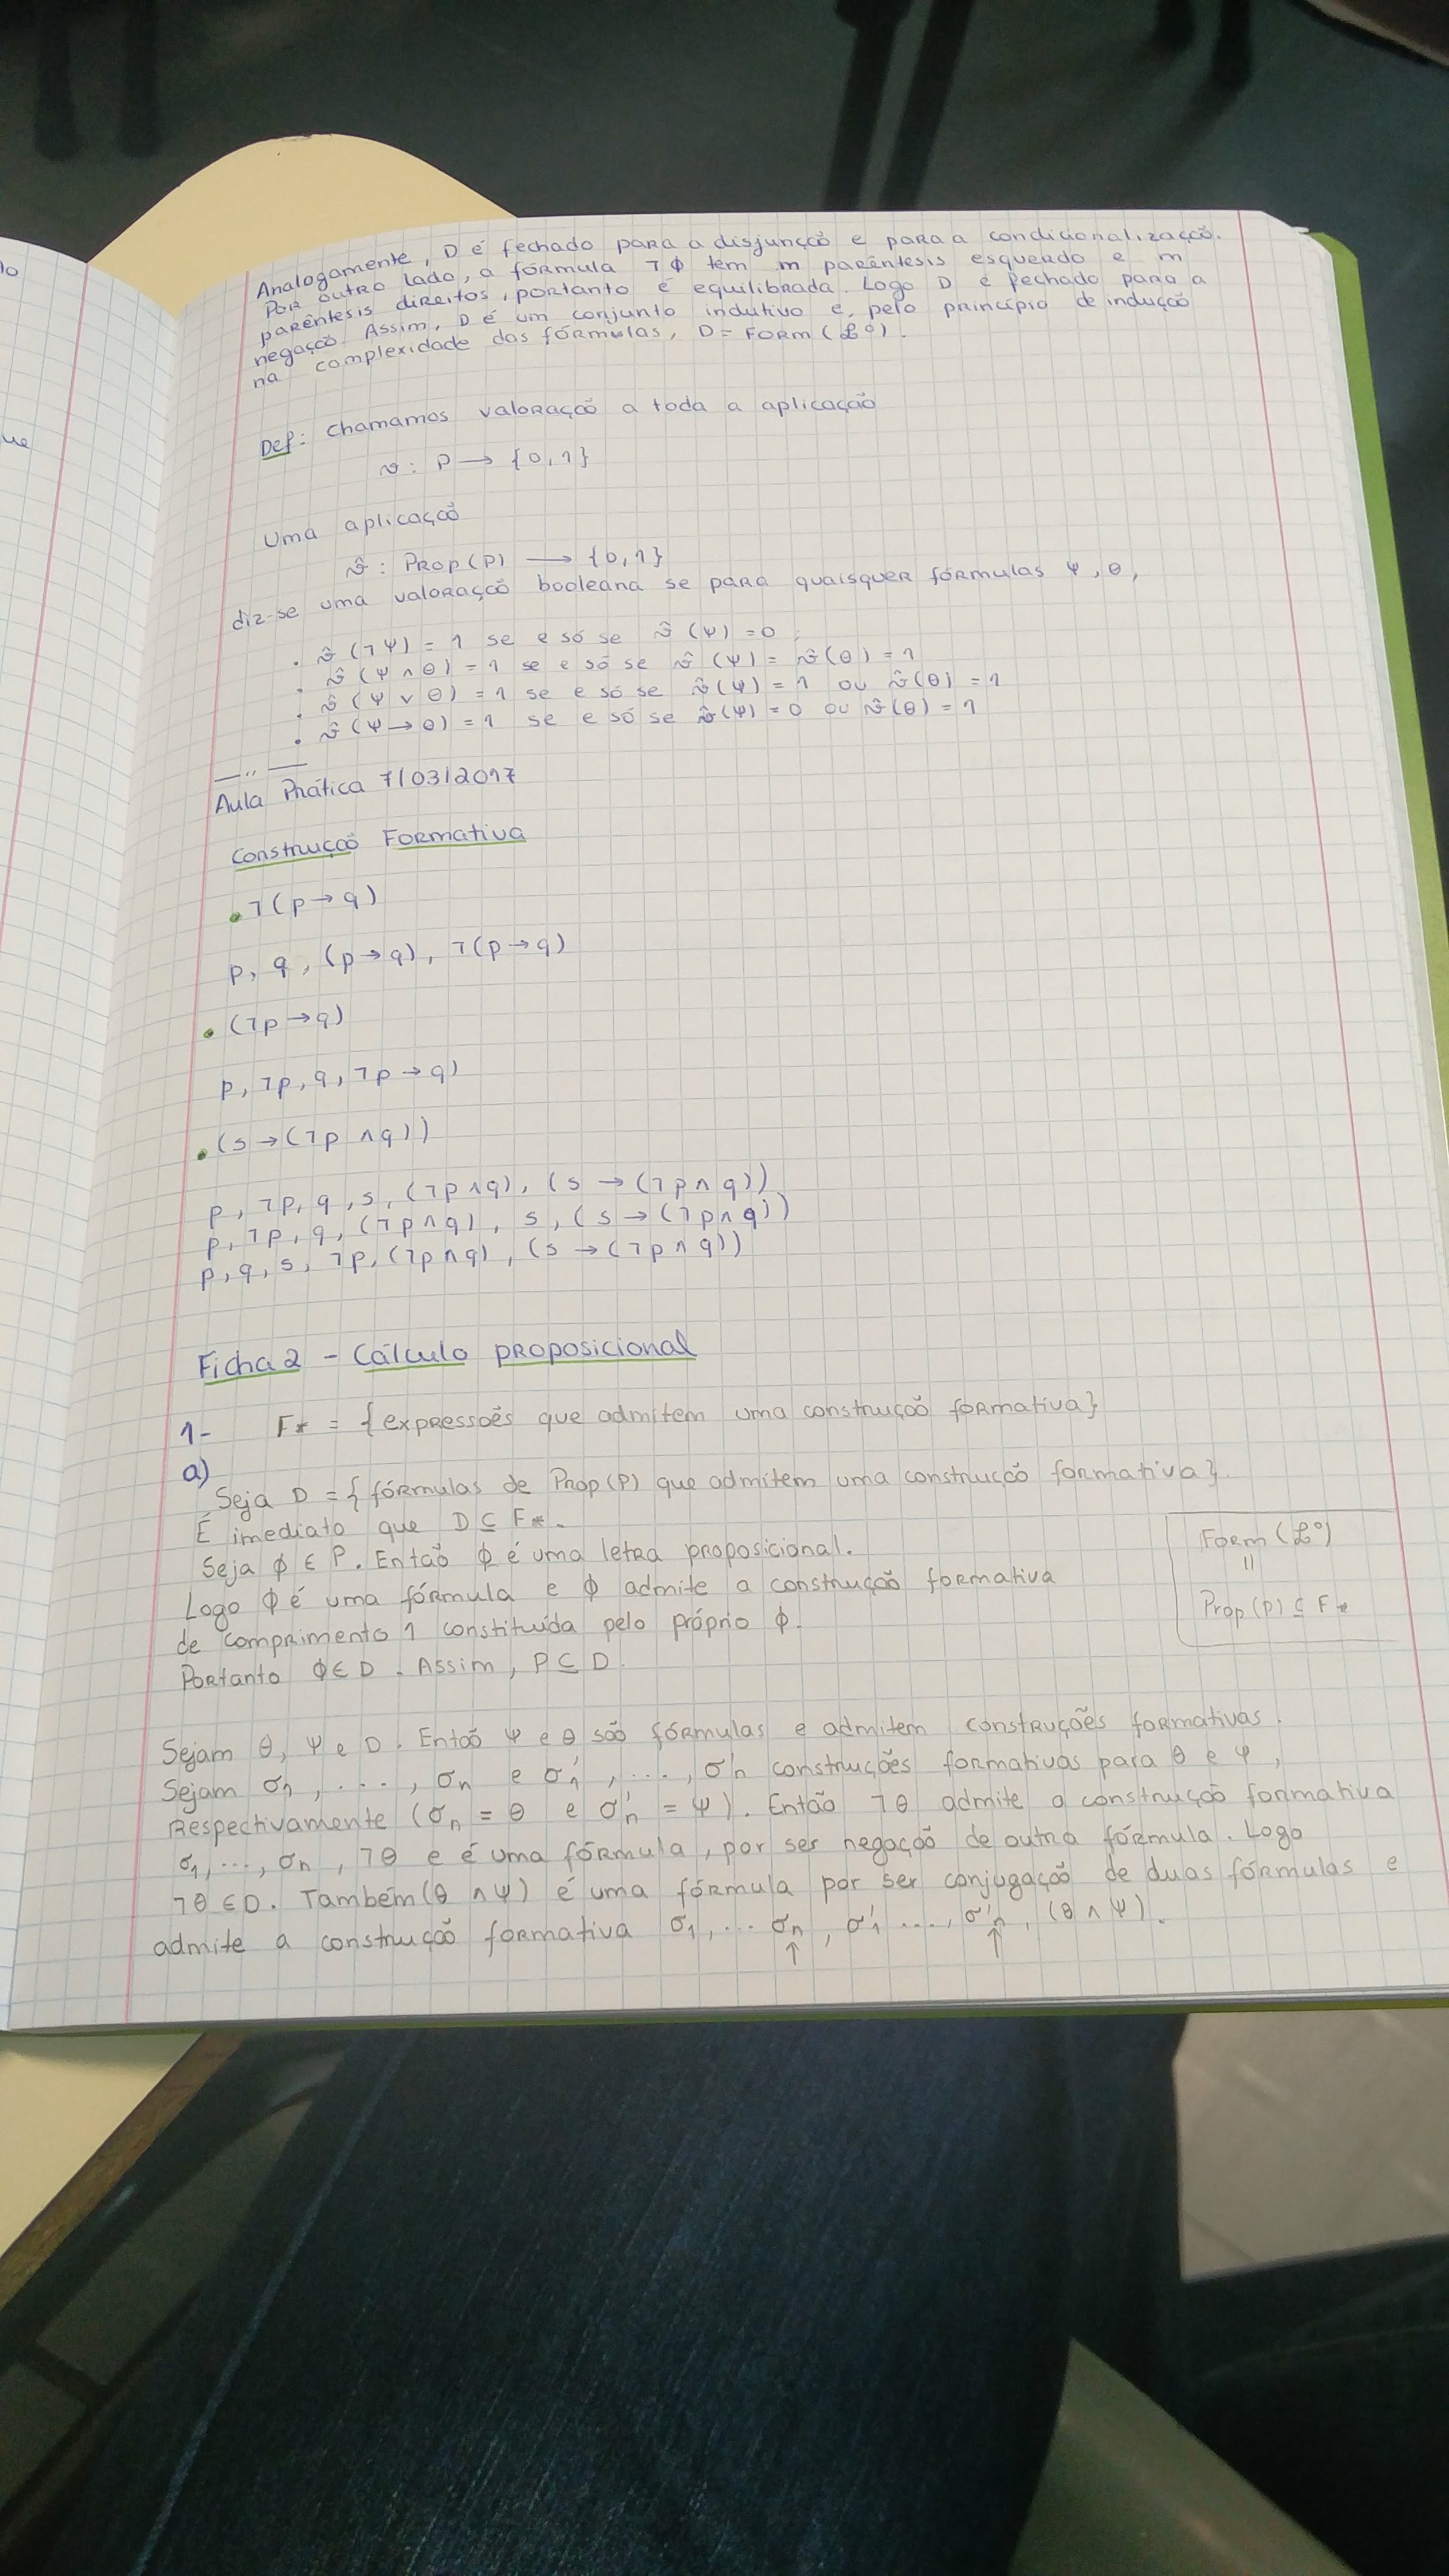 Analogamente, D é fechado para a disjunção e para a condicionalização.
Por outro lado, a fórmula ¬ϕ tem m parêntesis esquerdo e m
parêntesis direitos, portanto é equilibrada. Logo D é fechado para a
negação. Assim, D é um conjunto indutivo e, pelo princípio de indução
na complexidade das fórmulas, D = FORM (ℒ⁰).
Def: Chamamos valoração a toda a aplicação
v: P → {0,1}
Uma aplicação
v̂: Prop(P) → {0,1}
diz-se uma valoração booleana se para quaisquer fórmulas ψ, θ,
. v̂ (¬ψ) = 1 se e só se v̂ (ψ) = 0;
. v̂ (ψ ∧ θ) = 1 se e só se v̂ (ψ) = v̂(θ) = 1
. v̂ (ψ ∨ θ) = 1 se e só se v̂(ψ) = 1 ou v̂(θ) = 1
. v̂ (ψ → θ) = 1 se e só se v̂(ψ) = 0 ou v̂(θ) = 1
—〃—
Aula Prática 7/03/2017
Construção Formativa
• ¬(p → q)
p, q, (p → q), ¬(p → q)
• (¬p → q)
p, ¬p, q, ¬p → q)
• (s → (¬p ∧ q))
p, ¬p, q, s, (¬p ∧ q), (s → (¬p ∧ q))
p, ¬p, q, (¬p ∧ q), s, (s → (¬p ∧ q))
p, q, s, ¬p, (¬p ∧ q), (s → (¬p ∧ q))
Ficha 2 - Cálculo proposicional
1- F* = {expressões que admitem uma construção formativa}
a)
Seja D = {fórmulas de Prop(P) que admitem uma construção formativa}.
É imediato que D ⊆ F*.
Seja ϕ ∈ P. Então ϕ é uma letra proposicional.
Logo ϕ é uma fórmula e ϕ admite a construção formativa
de comprimento 1 constituída pelo próprio ϕ.
Portanto ϕ ∈ D. Assim, P ⊆ D.
Form (ℒ⁰)
=
Prop(P) ⊆ F*
Sejam θ, ψ e D. Então ψ e θ são fórmulas e admitem construções formativas.
Sejam σ1, ..., σn e σ'1, ..., σ'n construções formativas para θ e ψ,
Respectivamente (σn = θ e σ'n = ψ). Então ¬θ admite a construção formativa
σ1, ..., σn, ¬θ e é uma fórmula, por ser negação de outra fórmula. Logo
¬θ ∈ D. Também (θ ∧ ψ) é uma fórmula por ser conjugação de duas fórmulas e
admite a construção formativa σ1, ... σn, σ'1 ..., σ'n, (θ ∧ ψ).
↑ ↑